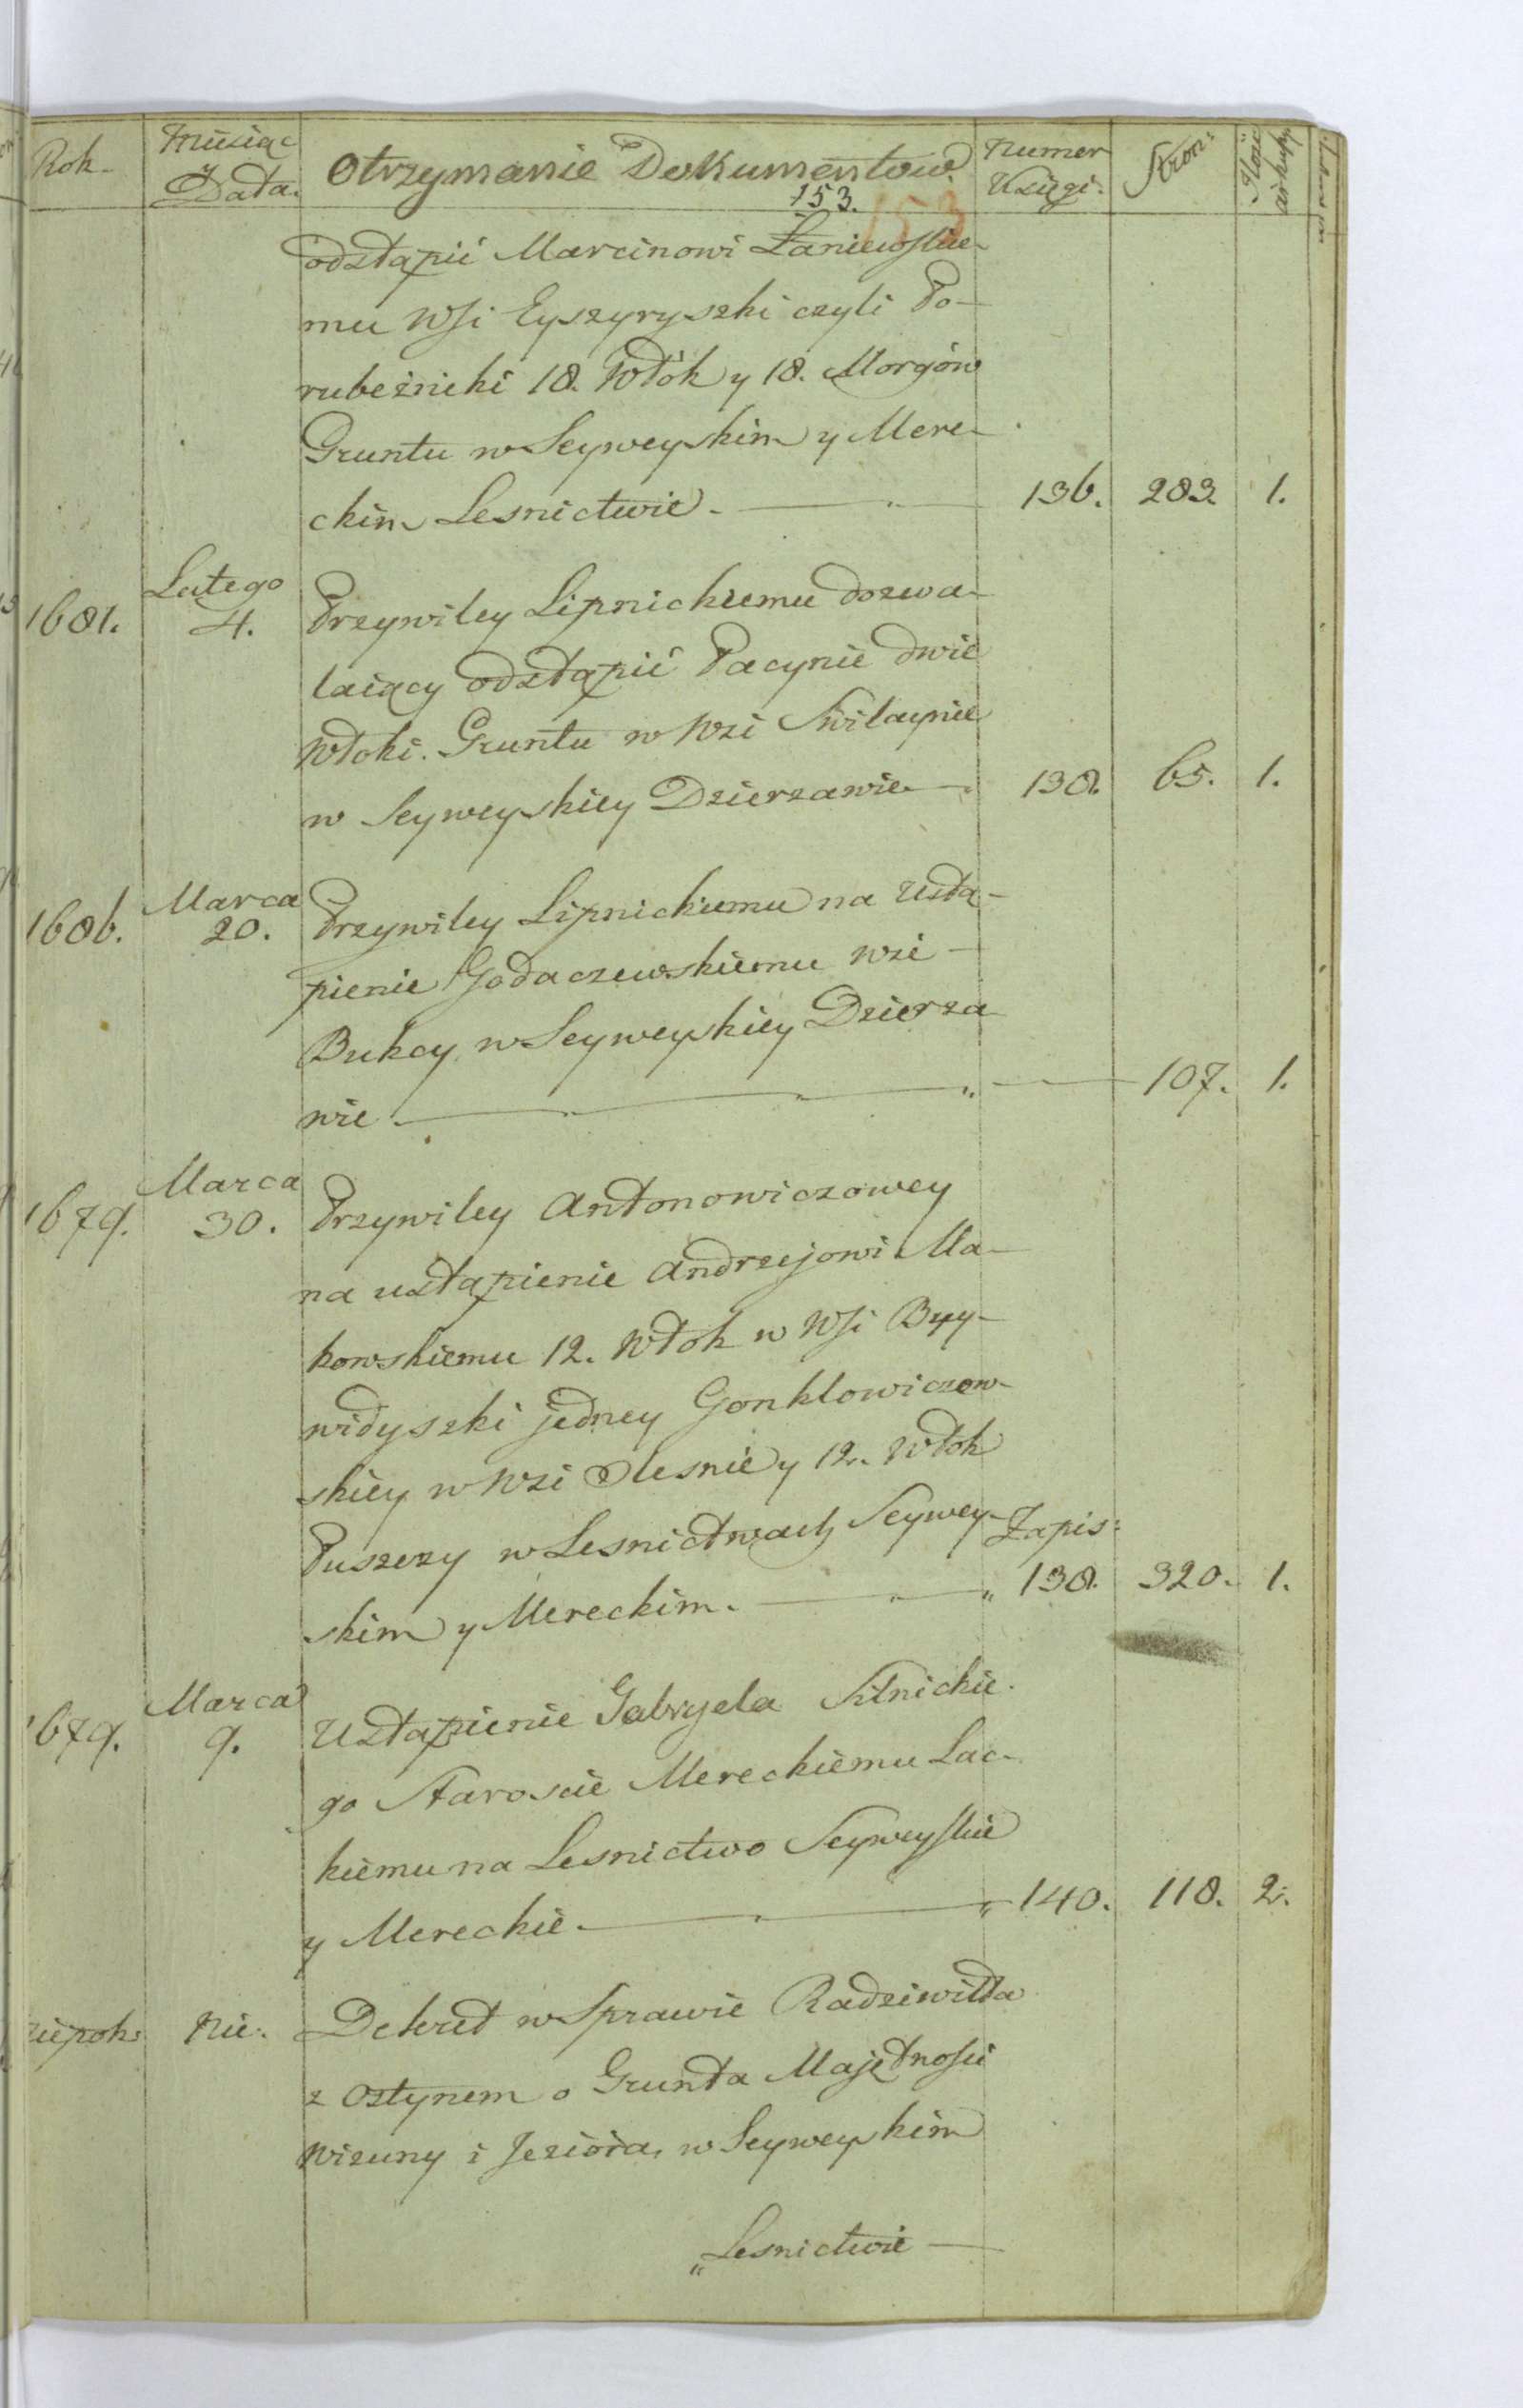 Rok. Miesiąc y Data. Otrzymanie Dokumentow. Numer Xsięgi. Stron: Ilość arkuszy
153. 153
odstąpić Marcinowi Łaniewskie-
mu Wsi Eyszyryszki czyli Po-
rubeżnicki 18. Włók y 18. Morgów
Gruntu w Seyweyskim y Mere-
ckim Lesnictwie. 136. 283. 1.
Lutego
1681. 4. Przywiley Lipnickiemu dozwa-
laiący odstąpić Pacynie dwie
Włoki. Gruntu w Wsi Świlaynie
w Seyweyskiey Dzierzawie 138. 65. 1.
Marca
1686. 20. Przywiley Lipnickiemu na Ustą-
pienie Godaczewskiemu wsi
Bukcy w Seyweyskiey Dzierza
wie 107. 1.
Marca
1679. 30. Przywiley Antonowiczowey
na ustąpienie Andrzejowi Ma-
kowskiemu 12. Włok w Wsi Byy-
widyszki jedney Gonklowiczow-
skiey w Wsi Olesnie y 12. Włok
Puszczy w Lesnictwach Seywey- Zapis:
skim y Mereckim. 138. 320. 1.
Marca
1679. 9. Ustąpienie Gabryela Silnickie.
go Staroscie Mereckiemu Lac-
kiemu na Lesnictwo Seyweyskie
y Mereckie. 140. 118. 2.
niepok: Nie. Dekret w Sprawie Radziwiłła
z Ostynem o Grunta Majętności
Wizuny i Jeziora, w Seyweyskim
„Lesnictwie